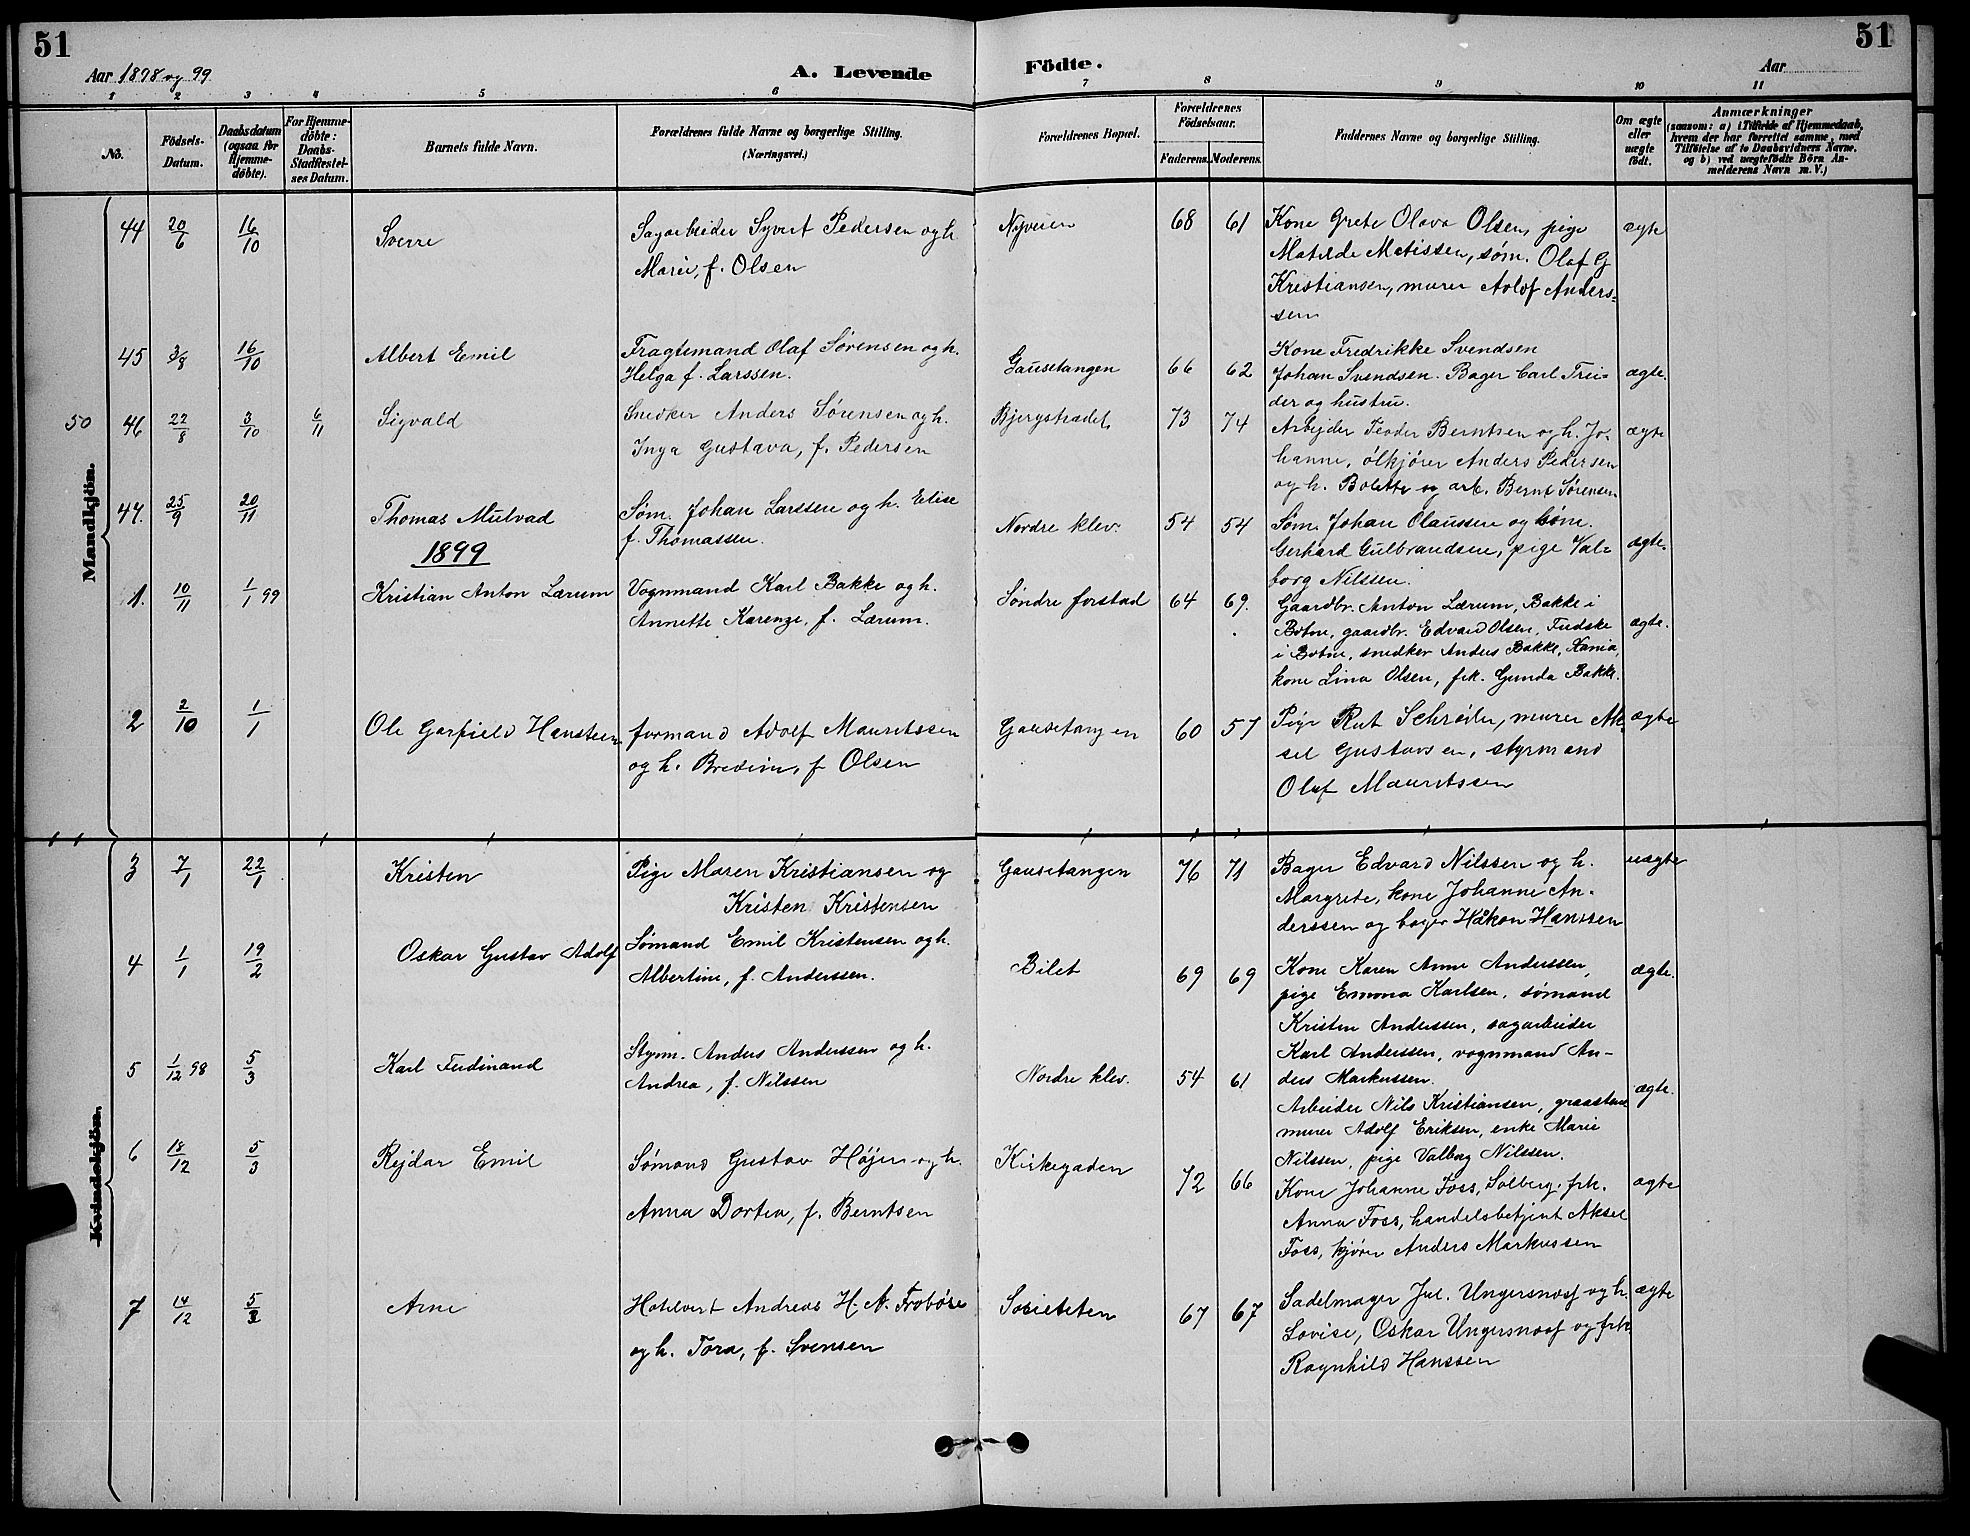 51
51
Aar 1898 og 99
A. Levende
Födte.
Aar
1 2 3 4 5 6 7 8 9 10 11
No.
Födsels-
Datum.
Daabsdatum
(ogsaa for
Hjemme-
döbte).
For Hjemme-
döbte:
Daabs-
Stadfæstel-
ses Datum.
Barnets fulde Navn.
Forældrenes fulde Navne og borgerlige Stilling.
(Næringsvei.)
Forældrenes Bopæl.
Forældrenes
Födselsaar.
Faderens. Moderens.
Faddernes Navne og borgerlige Stilling.
Om ægte
eller
uægte
födt.
Anmærkninger
(saasom: a) i Tilfælde af Hjemmedaab,
hvem der har forrettet samme, med
Tilföielse af to Daabsvidners Navne.
og b) ved uægtefödte Börn An-
melderens Navn m. V.)
Mandkjön.
44 20/6 16/10 Sverre
Sagarbeider Syvert Pedersen og h.
Marie, f. Olsen
Nyveien 68 61
Kone Grete Olava Olsen, pige
Matilde Matissen, søm. Olaf G
Kristiansen, murer Adolf Anders-
sen
ægte
45 3/8 16/10 Albert Emil
Fragtemand Olaf Sørensen og h.
Helga f. Larssen.
Gausetangen 66 62
Kone Fredrikke Svendsen
Johan Svendsen. Bager Carl Trei-
der og hustru.
ægte.
50 46 22/8 3/10 6/11 Sigvald
Snedker Anders Sørensen og h.
Inga Gustava, f. Pedersen
Bjergstrædet 73 74
Arbejder Teodor Berntsen og h. Jo-
hanne, ølkjører Anders Pedersen
og h. Bolette og arb. Bernt Sørensen
ægte
47. 25/9 20/11 Thomas Mulvad
Søm. Johan Larssen og h. Elise
f. Thomassen.
Nordre klev. 54 54
Søm. Johan Claussen og søm.
Gerhard Gulbrandsen, pige Val-
borg Nilssen.
ægte.
1899
1. 10/11 1/1 99 Kristian Anton Lærum
Vognmand Karl Bakke og h.
Annette Karense, f. Lærum.
Søndre forstad 64 69.
Gaardbr. Anton Lærum, Bakke i
Botne, gaardbr. Edvard Olsen,
i Botne, snedker Anders Bakke, Xania,
kone Lina Olsen, frk. Gunda Bakke.
ægte.
2 2/10 1/1 Ole Garfield Hansteen
formand Adolf Mauritssen
og h. Bredine, f. Olsen
Gausetangen 60 57
Pige Rut Schreiler, murer Ak-
sel Gustavsen, styrmand
Olaf Mauritssen
ægte
Kvindekjön.
3 7/1 22/1 Kristen
Pige Maren Kristiansen og
Kristen Kristensen
Gausetangen 76 71
Bager Edvard Nilssen og h.
Margrete, kone Johanne An-
derssen og bager Håkon Hanssen
uægte
4 1/1 19/2 Oskar Gustav Adolf
Sømand Emil Kristensen og h.
Albertine, f. Anderssen.
Bilet 69 69
Kone Karen Anne Anderssen,
pige Emma Karlsen, sømand
Kristen Anderssen, sagarbeider
Karl Anderssen, vognmand An-
ders Markussen.
ægte.
5 1/12 98 5/3 Karl Ferdinand
Styrm. Anders Anderssen og h.
Andrea, f. Nilssen
Nordre klev. 54 61
Arbeider Nils Kristiansen, graasteens
murer Adolf Eriksen, enke Marie
Nilssen, pige Valbog Nilssen.
ægte.
6 18/12 5/3 Rejdar Emil
Sømand Gustav Højer og h.
Anna Dortea, f. Berntsen
Kirkegaden 72 66
Kone Johanne Foss, Solberg, frk.
Anna Foss, handelsbetjent Aksel
Foss, kjører Anders Markussen
ægte
7 14/12 5/3 Arne
Hotelvert Andreas H. A. Frobøse
og h. Tora, f. Svensen
Societeten 67 67
Sadelmager Jul. Ungersnoss og h.
Lovise, Oskar Ungersnoss og frk.
Ragnhild Hanssen
ægte